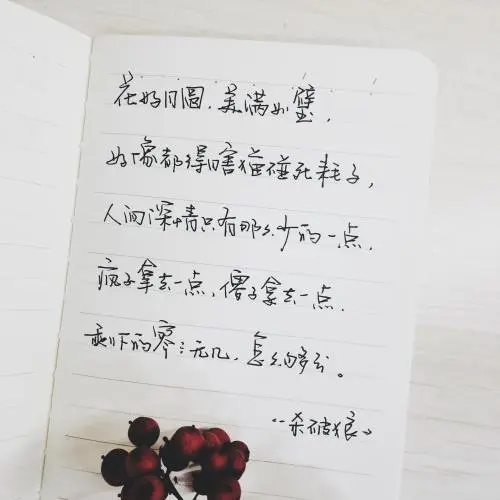 花好月圆,美满如璧,
好像都得瞎猫碰死耗子,
人间深情只有那么少的一点,
疯子拿去一点,傻子拿去一点,
剩下的寥寥无几,怎么够分。
《杀破狼》